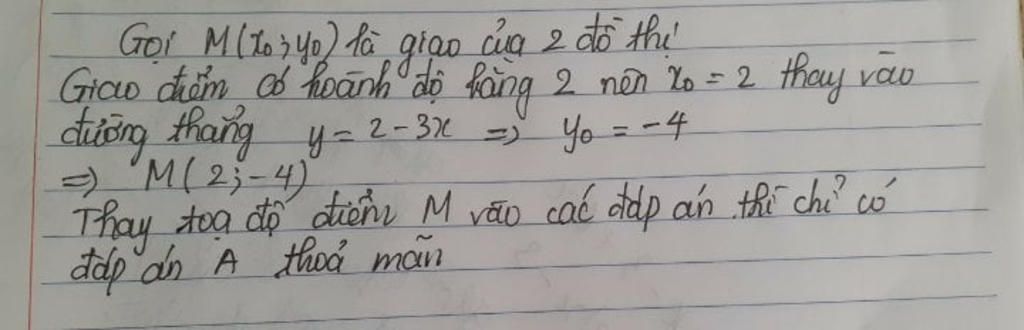 Gọi M(x₀; y₀) là giao của 2 đồ thị
Giao điểm có hoành độ bằng 2 nên x₀ = 2 thay vào
đường thẳng y = 2 - 3x => y₀ = -4
=> M(2; -4)
Thay toạ độ điểm M vào các đáp án thì chỉ có
đáp án A thoả mãn